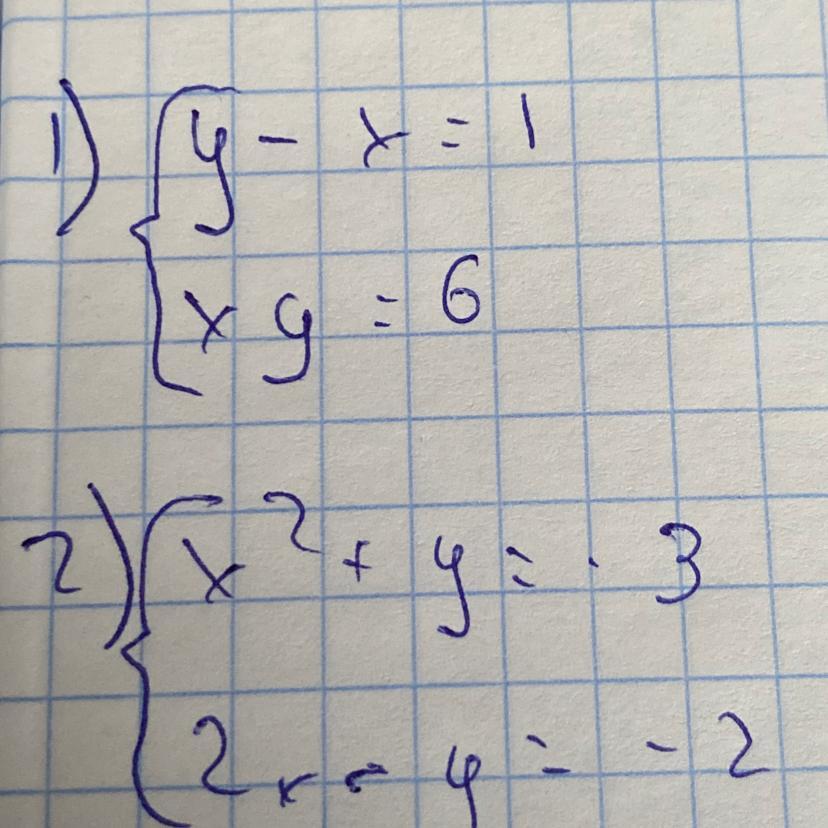 1) { y - x = 1
x y = 6
2) { x² + y = · 3
2x - y = - 2